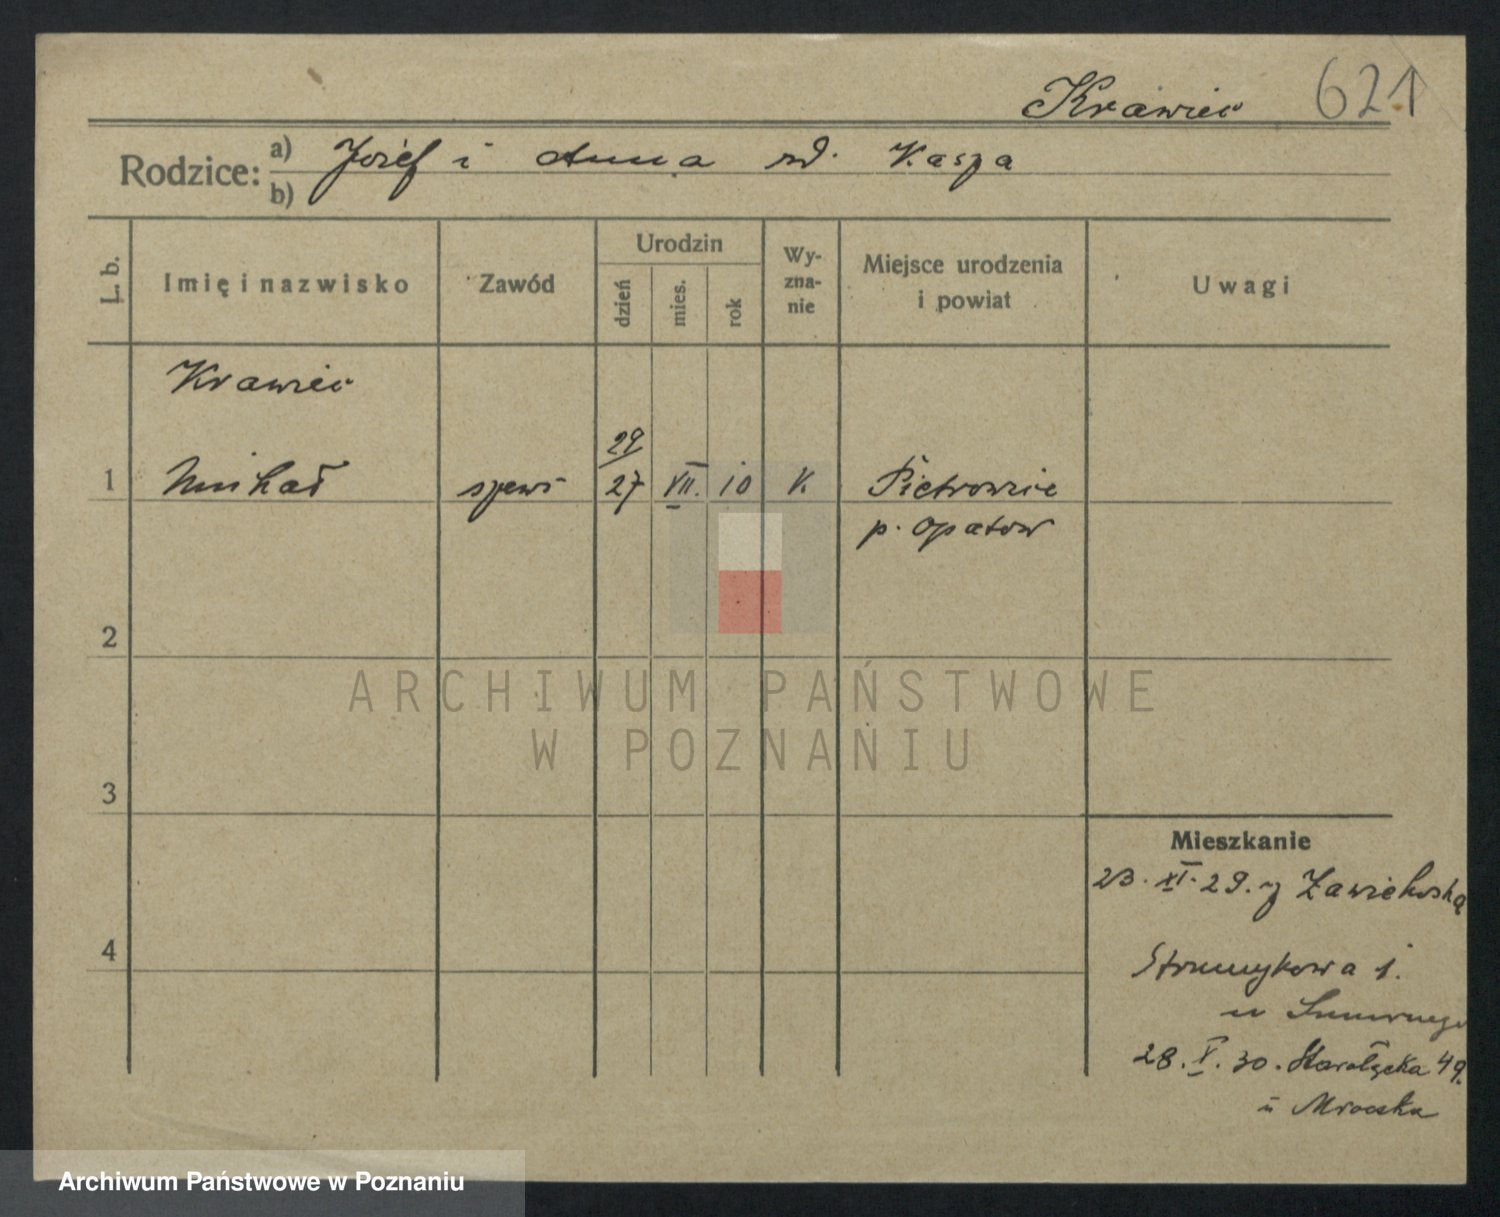 Krawiec 621
Rodzice: a) Józef i Anna zd. Kaszpa
b)
L. b. Imię i nazwisko Zawód Urodzin dzień mies. rok Wy-zna-nie Miejsce urodzenia i powiat Uwagi
Krawiec
29
1 Michał szewc 27 VII. 10 K. Pietrowice
p. Opatow
2
ARCHIWUM PAŃSTWOWE
W POZNANIU
3
Mieszkanie
23. XI. 29. z Zawichostą
4
Strumykowa 1.
u
28. V. 30. Starołęcka 49.
u Mroczka
Archiwum Państwowe w Poznaniu